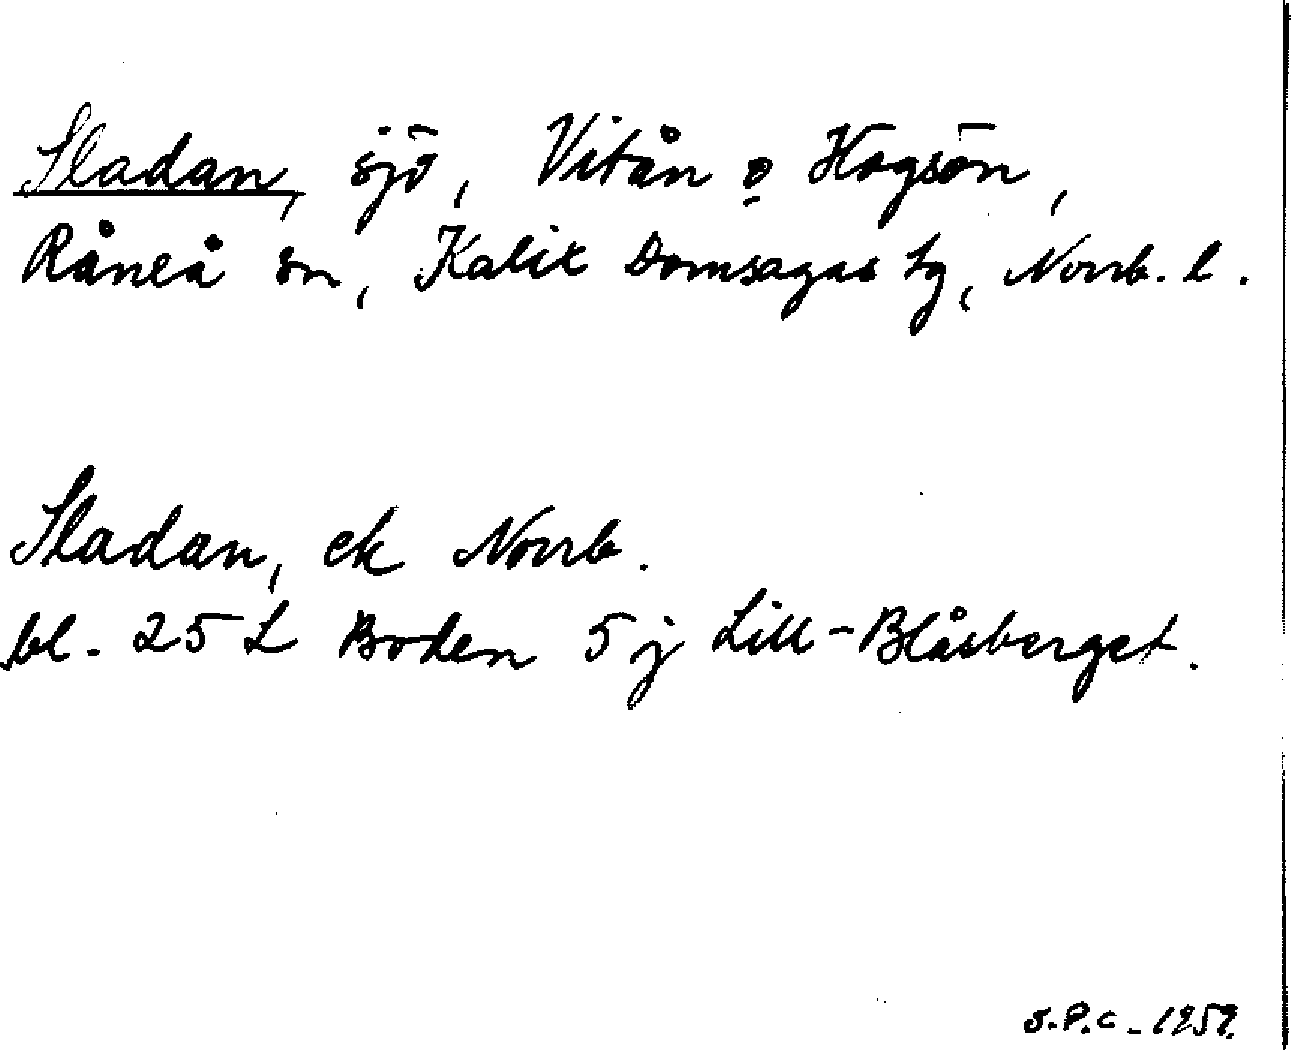 Sladan, sjö, Vitån o Högsön,
Råneå sn, Kalix Domsagas tg, Norrb. l.
Sladan, ek Norrb.
bl. 25 L Boden 5 j Lill-Blåsberget.
S.P.C. - 1959.